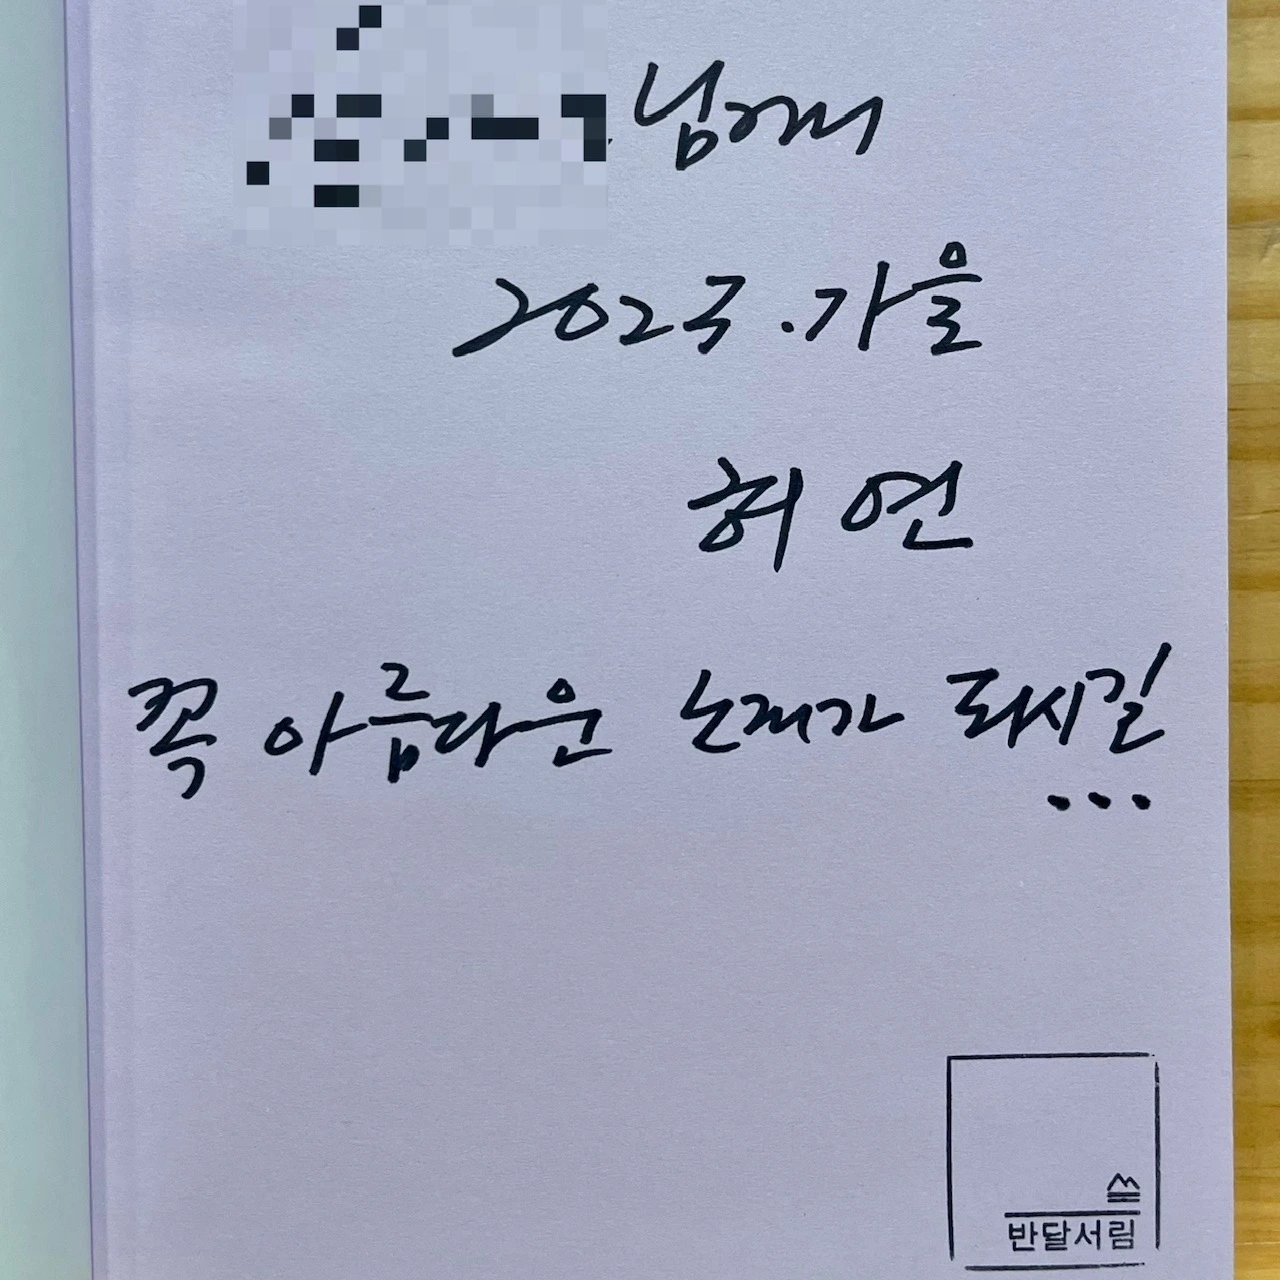 님께
2023. 가을
허 연
꼭 아름다운 노래가 되시길
...
반달서림